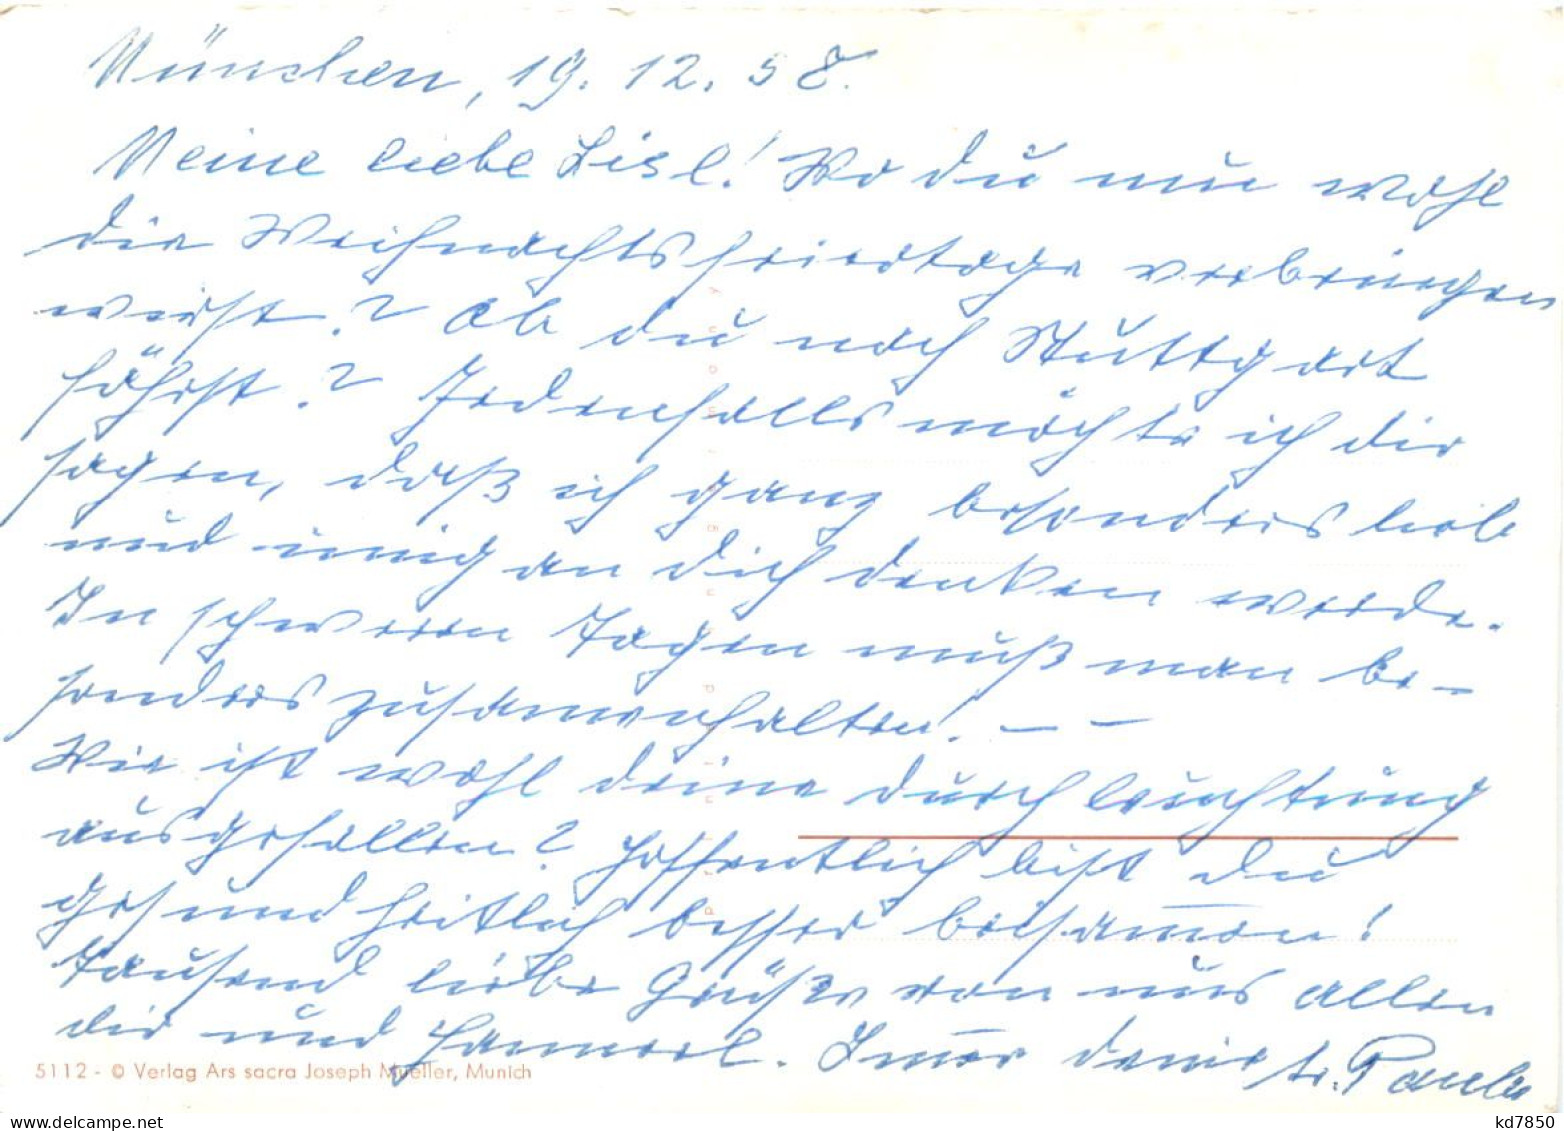 München, 19. 12. 58.
Meine liebe Lisl! Wo du nun wohl
die Weihnachtsfeiertage verbringen
wirst? Ob du nach Stuttgart
fährst? Jedenfalls möchte ich dir
sagen, daß ich ganz besonders lieb
und innig an dich denken werde.
In schweren Tagen muß man be-
sonders zusamenhalten! – –
Wie ist wohl deine Durchleuchtung
ausgefallen? Hoffentlich bist du
gesundheitlich besser beisamen!
Tausend liebe Grüße von uns allen
dir und Hannerl. Imer deine tr. Paula
5112 - © Verlag Ars sacra Joseph Mueller, Munich
kd7850